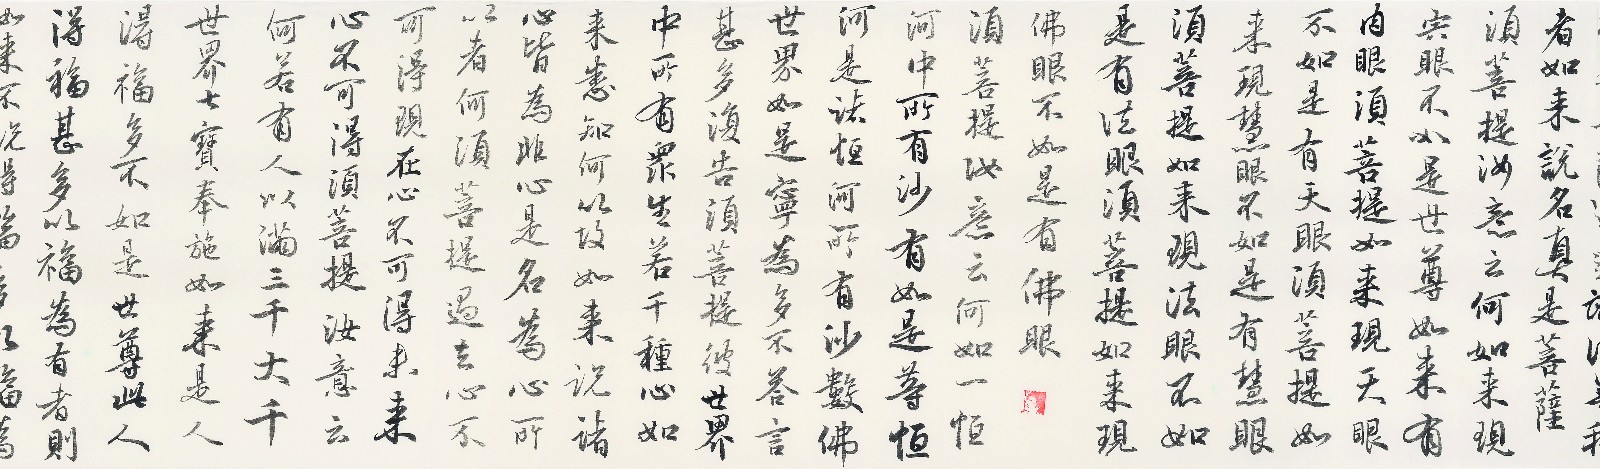 者如来說名真是菩薩
須菩提汝意云何如来現
宍眼不如是世尊如来有
肉眼須菩提如来現天眼
不如是有天眼須菩提如
来現慧眼不如是有慧眼
須菩提如来現法眼不如
是有法眼須菩提如来現
佛眼不如是有佛眼
須菩提汝意云何如一恒
河中所有沙有如是等恒
河是諸恒河所有沙數佛
世界如是寧為多不答言
甚多復告須菩提彼世界
中所有眾生若干種心如
来悉知何以故如来說諸
心皆為非心是名為心所
以者何須菩提過去心不
可得現在心不可得未来
心不可得須菩提汝意云
何若有人以滿三千大千
世界七寶奉施如来是人
得福多不如是世尊此人
得福甚多以福為有者則
如来不說得福多以福為